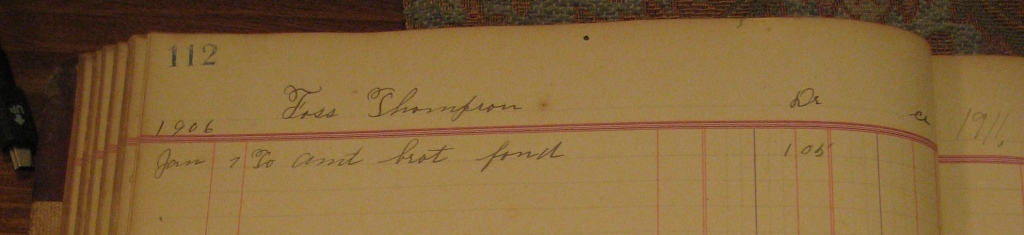 112
Foss Thompson Dr Cr
1906 1911,
Jan 7 To amt brot ford 1 05